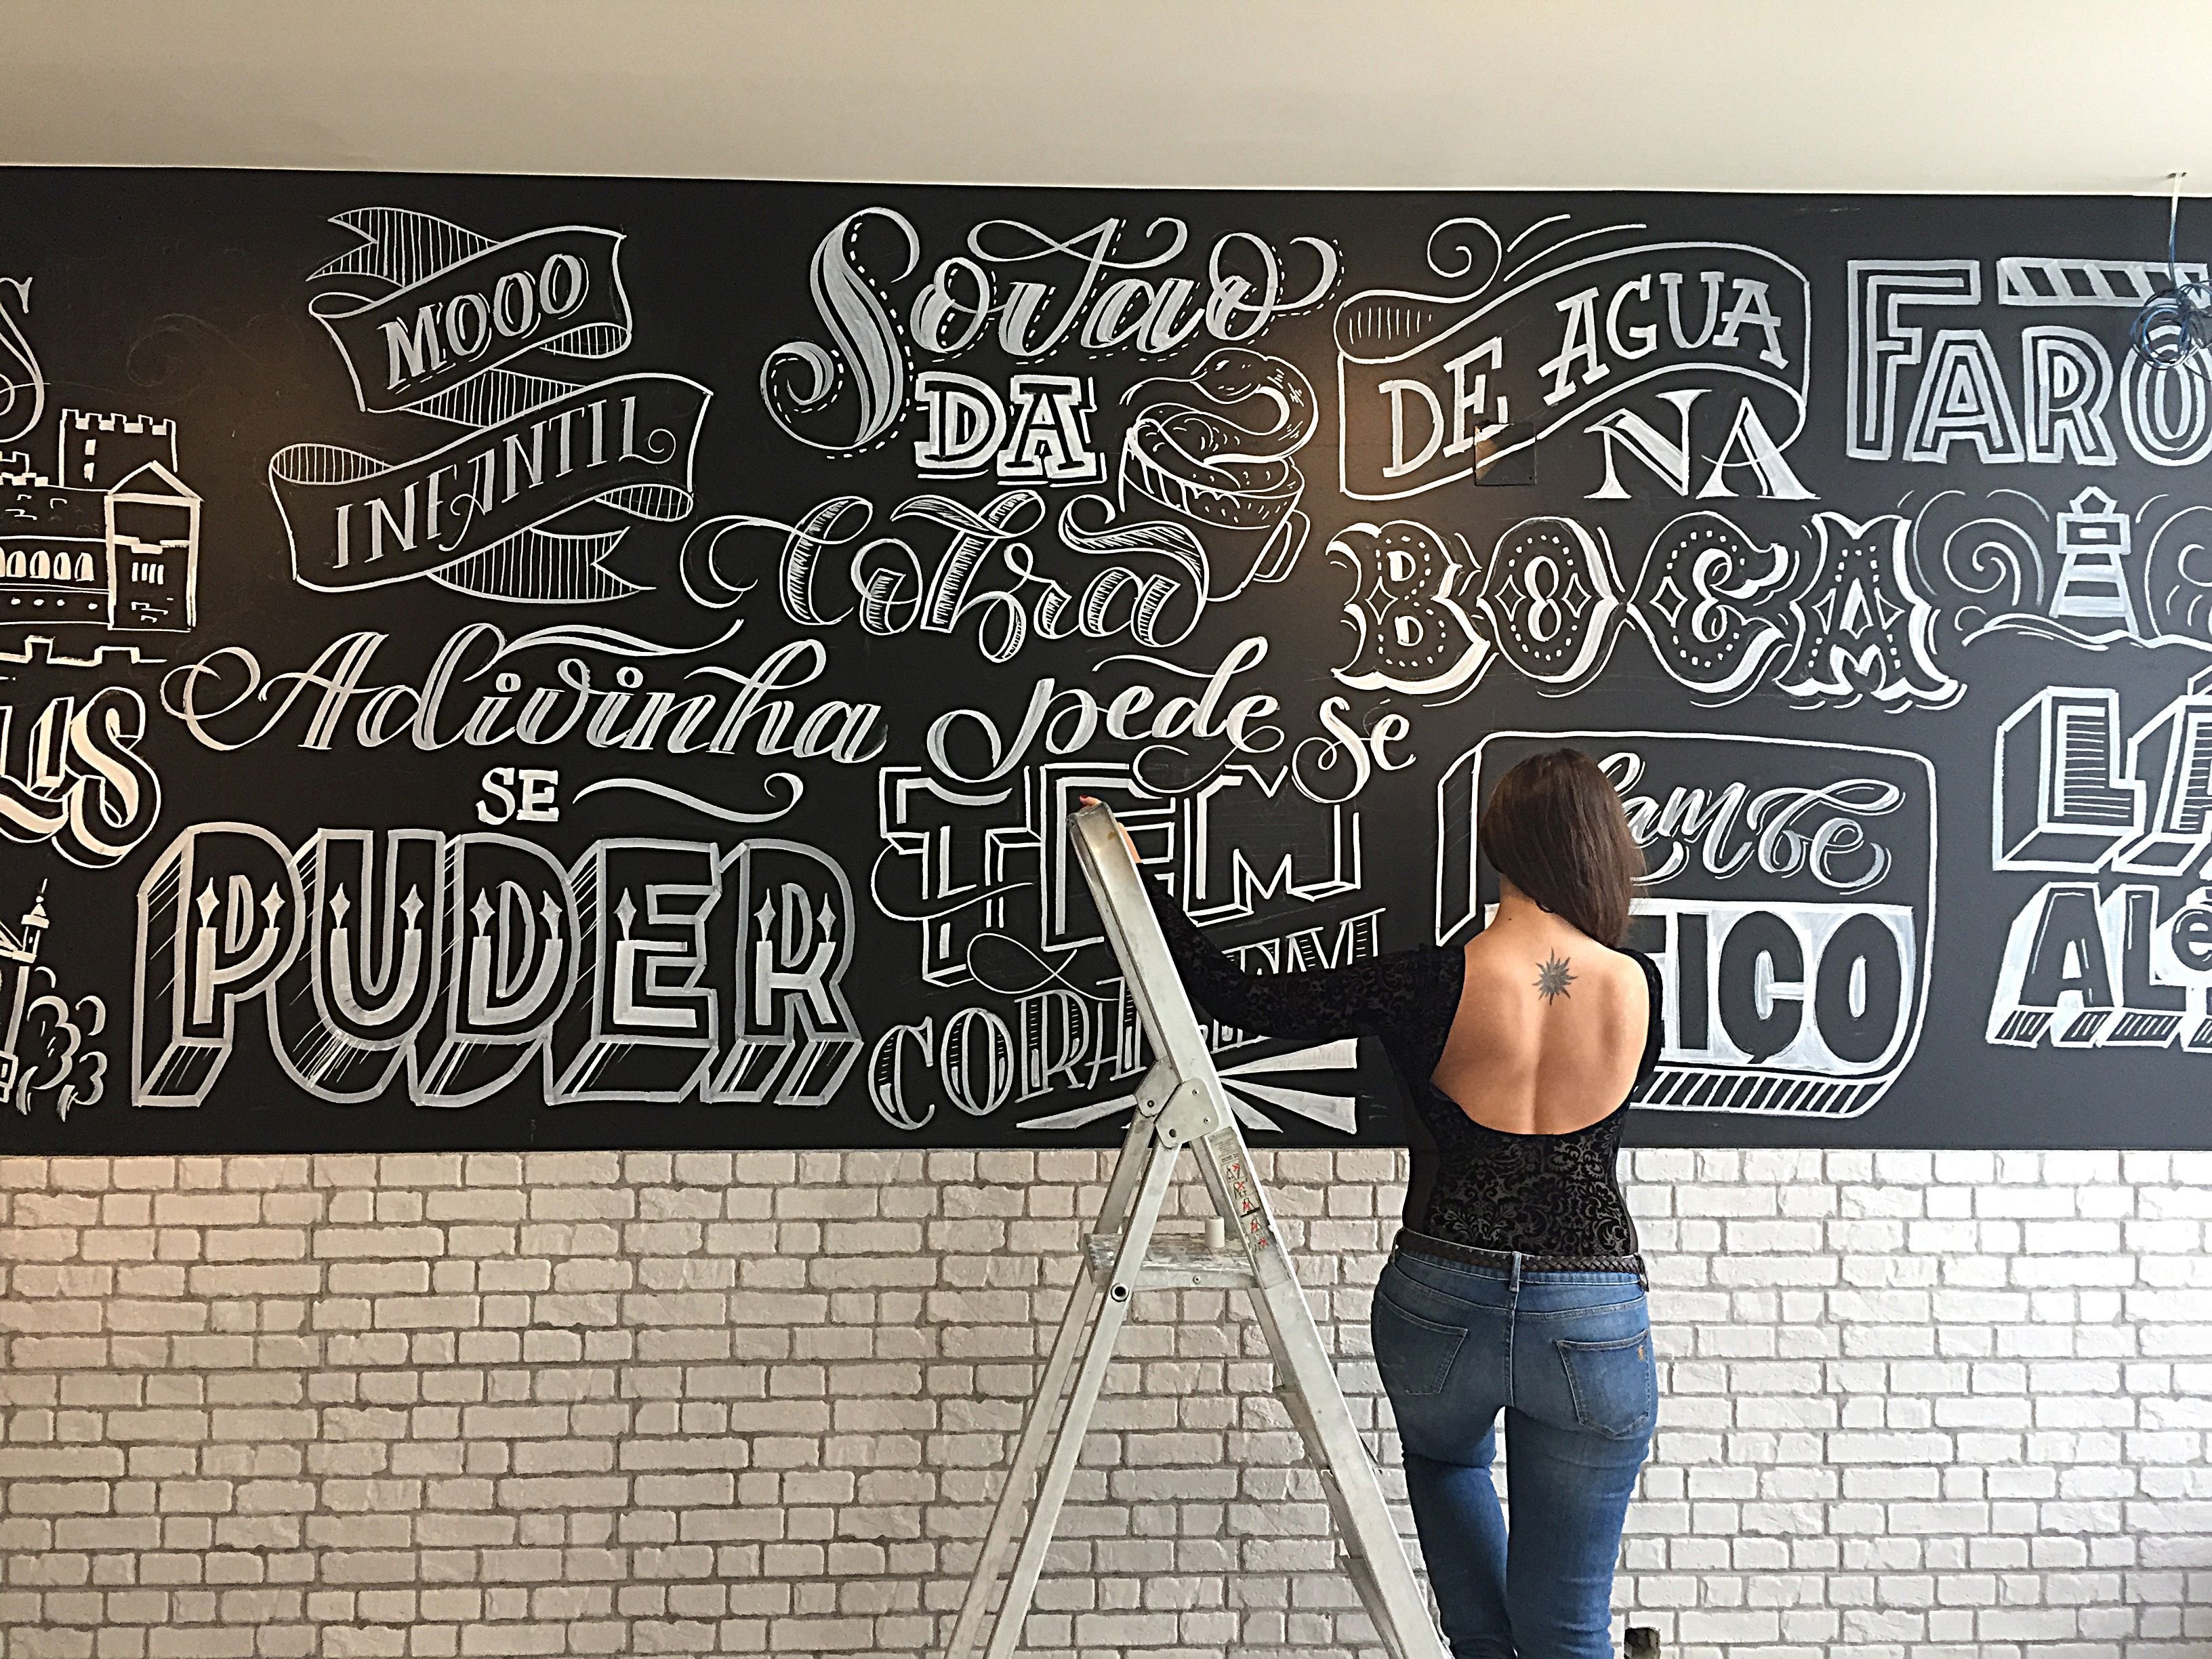 MOOO
INFANTIL
Sovao
DA
Cobra
DE AGUA
NA
BOCA
FARO
Adivinha
SE
PUDER
pede se
TEM
Lambe
ALÉ